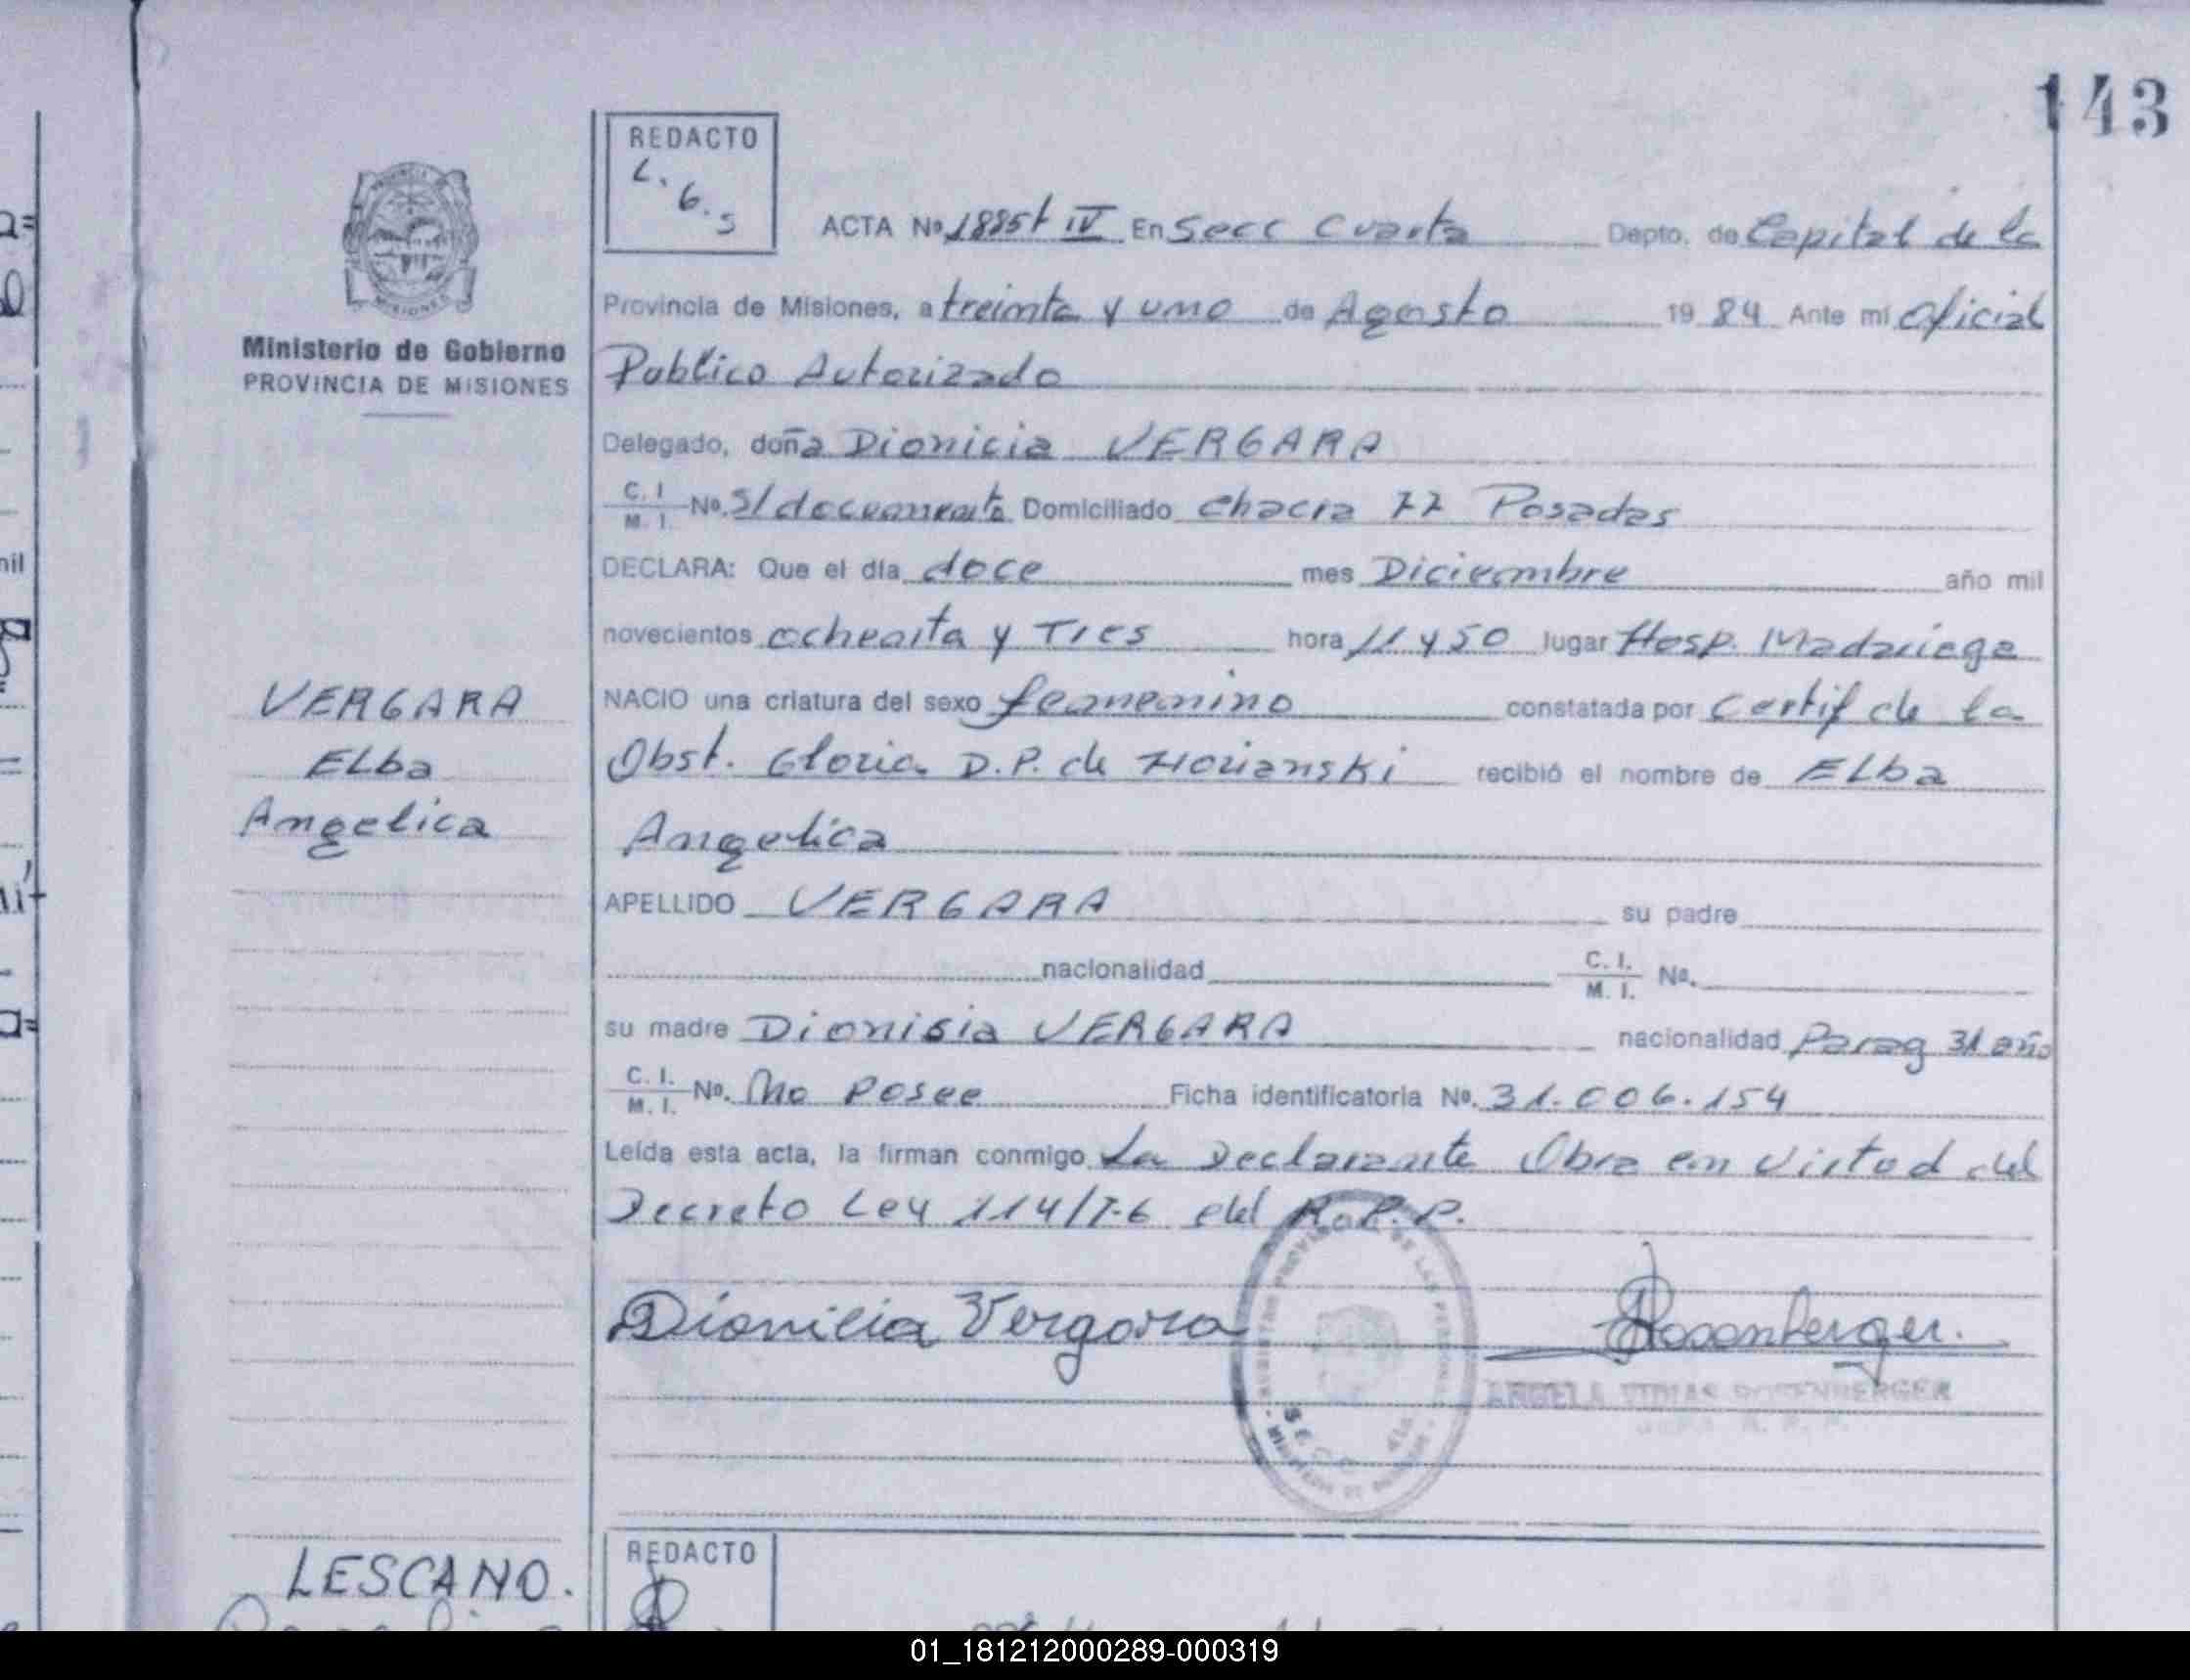 143
REDACTO
L. G. S
ACTA Nº 1885 t IV En Secc Cuarta Depto. de Capital de la
Provincia de Misiones, a treinta y uno de Agosto 1984 Ante mí Oficial
Publico Autorizado
Delegado, doña Dionicia VERGARA
C. I. M. I. Nº. S/documento Domiciliado Chacra 77 Posadas
DECLARA: Que el día doce mes Diciembre año mil
novecientos ochenta y Tres hora 11 y 50 lugar Hosp. Madariaga
NACIO una criatura del sexo femenino constatada por Certif de la
Obst. Gloria D.P. de Horianski recibió el nombre de ELba
Angelica
APELLIDO VERGARA su padre
nacionalidad C. I. M. I. Nº.
su madre Dionisia VERGARA nacionalidad Parag 31 año
C. I. M. I. Nº. No Posee Ficha identificatoria Nº. 31.006.154
Leída esta acta, la firman conmigo La Declarante Obra en Virtud del
Decreto Ley 114/76 del R.P.P.
Dionicia Vergara
Rosenberger.
ANGELA ROSENBERGER
R. P. P.
SECC 4ta
Ministerio de Gobierno
PROVINCIA DE MISIONES
VERGARA
ELba
Angelica
LESCANO.
REDACTO
01_181212000289-000319